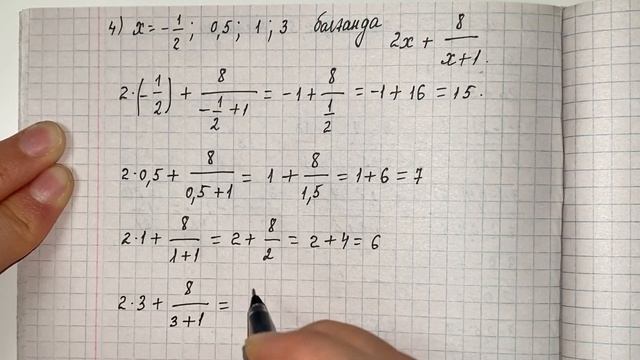 4) x = -1/2; 0,5; 1; 3 болганда 2x + 8/(x+1).
2·(-1/2) + 8/(-1/2+1) = -1 + 8/(1/2) = -1 + 16 = 15.
2·0,5 + 8/(0,5+1) = 1 + 8/1,5 = 1 + 6 = 7
2·1 + 8/(1+1) = 2 + 8/2 = 2 + 4 = 6
2·3 + 8/(3+1) =